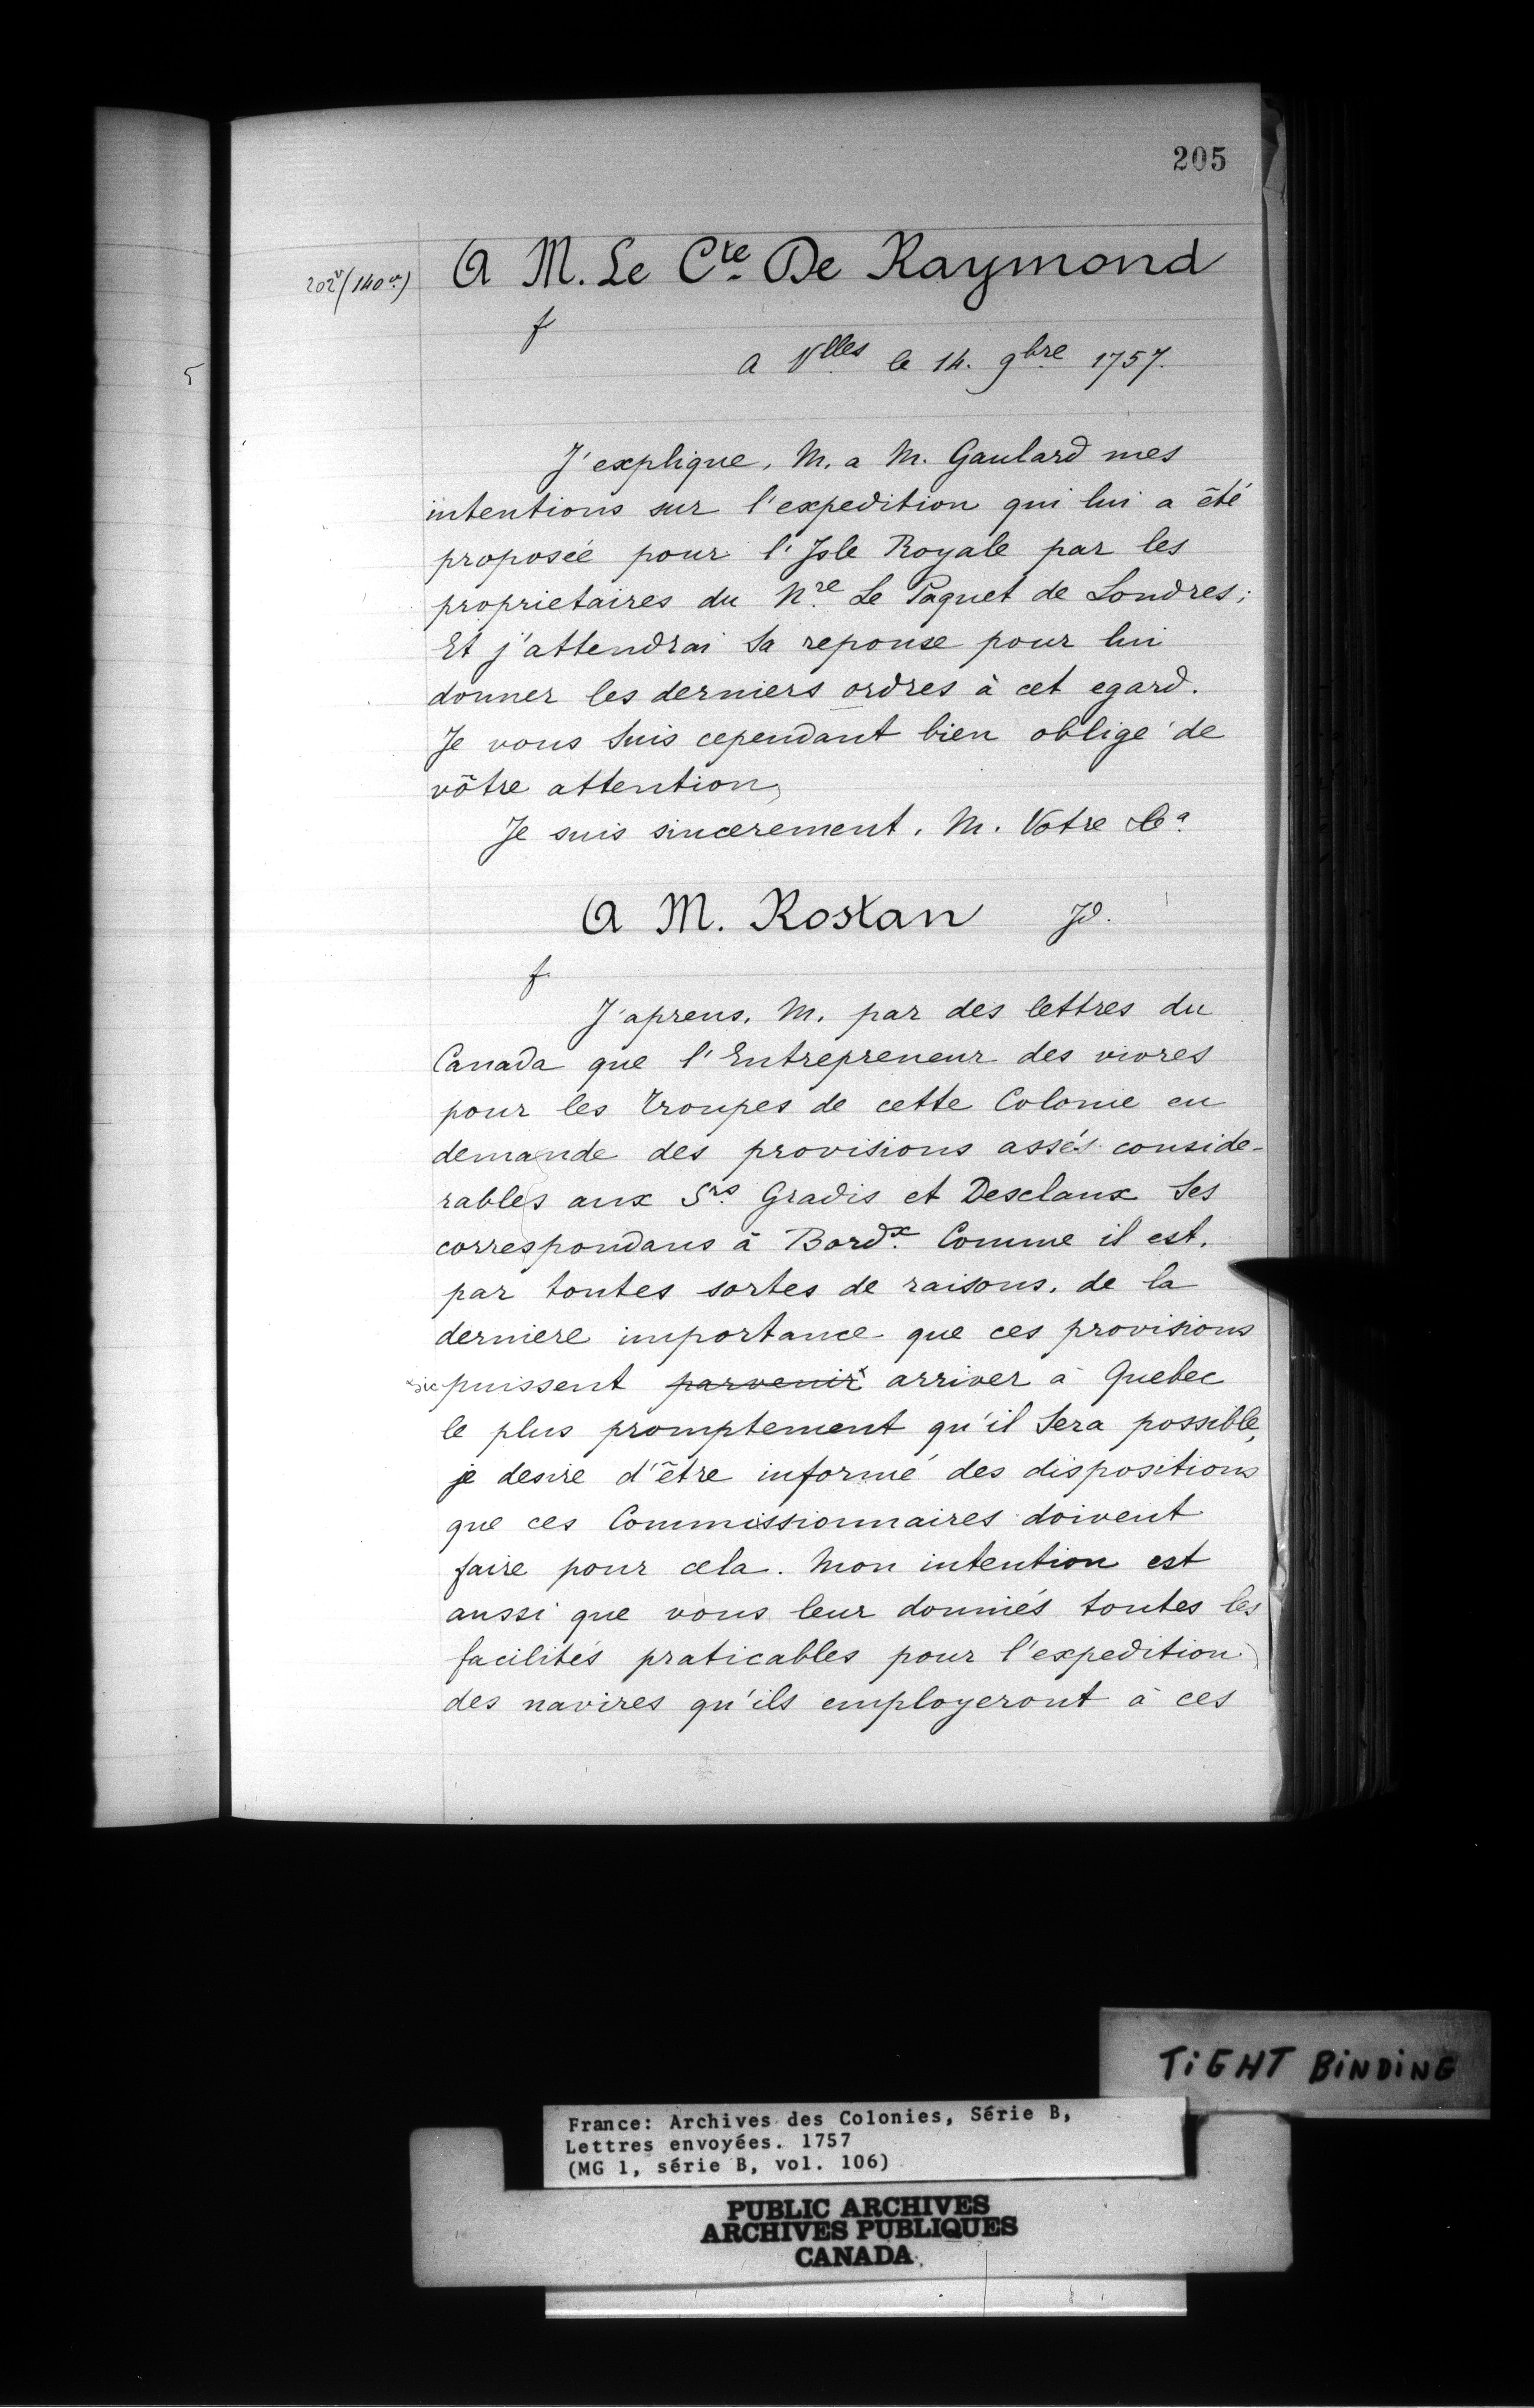 205
202v (140v.)
A M. Le Cte. De Raymond
f
5
A Vlles. le 14. 9bre. 1757.
J'explique, M. a M. Gaulard mes
intentions sur l'expedition qui lui a êté
proposée pour l'Isle Royale par les
proprietaires du Nre. Le Paquet de Londres;
Et j'attendrai Sa reponse pour lui
donner les derniers ordres à cet egard.
Je vous Suis cependant bien obligé de
vôtre attention,
Je suis sincerement, M. Votre &ca.
A M. Rostan Id.
f
J'aprens, M. par des lettres du
Canada que l'Entrepreneur des vivres
pour les Troupes de cette Colonie en
demande des provisions assés conside-
rables aux Srs. Gradis et Desclaux Ses
correspondans à Bordx. Comme il est,
par toutes sortes de raisons, de la
derniere importance que ces provisions
x sic puissent parvenir x arriver à Quebec
le plus promptement qu'il Sera possible,
je desire d'être informé des dispositions
que ces Commissionnaires doivent
faire pour cela. Mon intention est
aussi que vous leur donniés toutes les
facilités praticables pour l'expedition
des navires qu'ils employeront à ces
TiGHT BiNDiNG
France: Archives des Colonies, Série B,
Lettres envoyées. 1757
(MG 1, série B, vol. 106)
PUBLIC ARCHIVES
ARCHIVES PUBLIQUES
CANADA